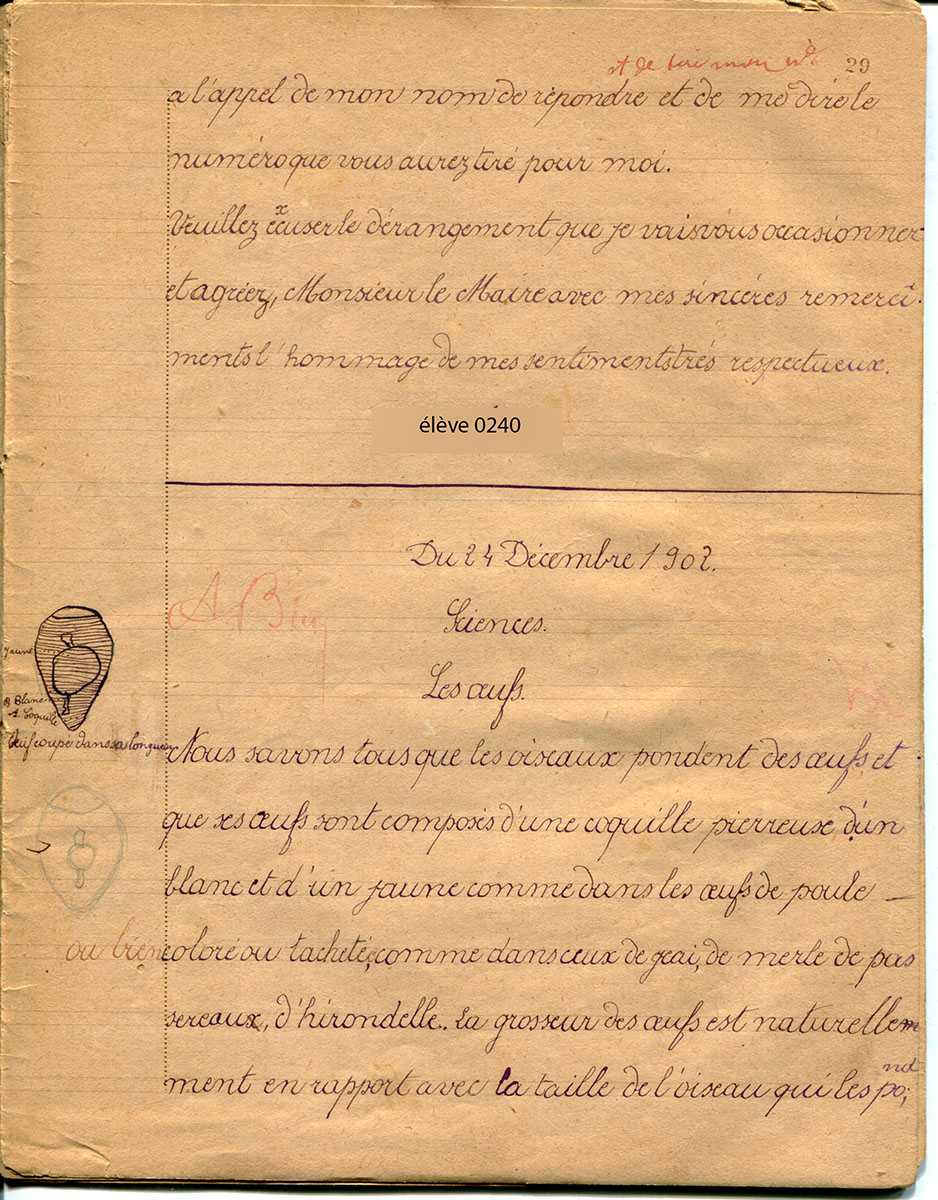 et de
29
a l'appel de mon nom de répondre et de me dire le
numéro que vous aurez tiré pour moi.
x
Veuillez ecuser le dérangement que je vais vous occasionner
et agréez, Monsieur le Maire avec mes sincéres remercî-
ments l'hommage de mes sentiments trés respectueux.
élève 0240
Du 24 Décembre 1902.
A Bien
Sciences.
Les œufs.
Jaune
B Blanc
A Coquille
Œuf coupé dans sa longueur
Nous savons tous que les oiseaux pondent des œufs et
que ses œufs sont composés d'une coquille pierreuse, d'un
blanc et d'un jaune comme dans les œufs de poule —
ou bien coloré ou tacheté, comme dans ceux de geai, de merle de pas
sereaux, d'hirondelle. La grosseur des œufs est naturellem
ment en rapport avec la taille de l'oiseau qui les po;
nd